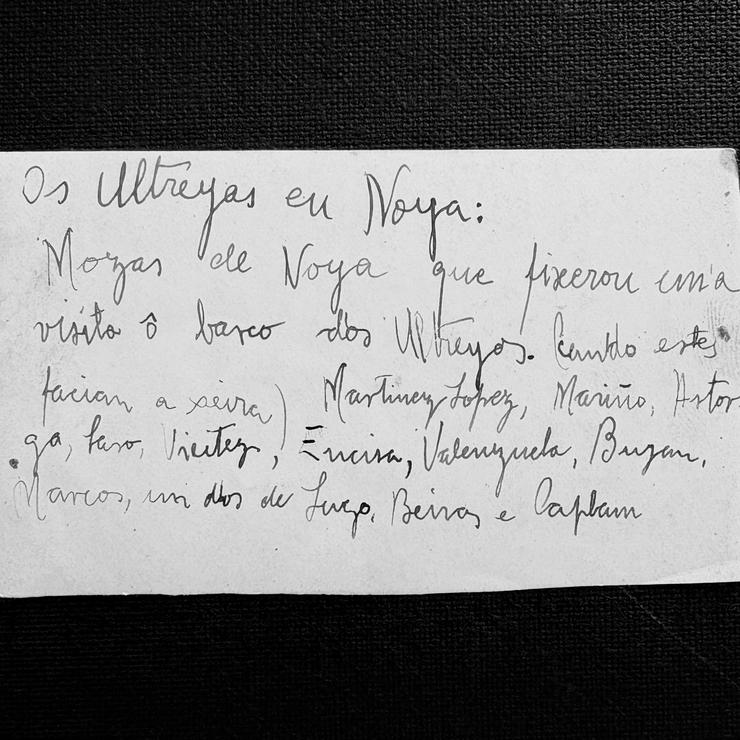 Os Ultreyas en Noya:
Mozas de Noya que fixeron unha
visita ô barco dos Ultreyas. Cando estes
facian a xeira) Martinez Lopez, Mariño, Astor-
ga, Laso, Vieitez, Encisa, Valenzuela, Buxan,
Marcos, un dos de Lugo, Beiras e